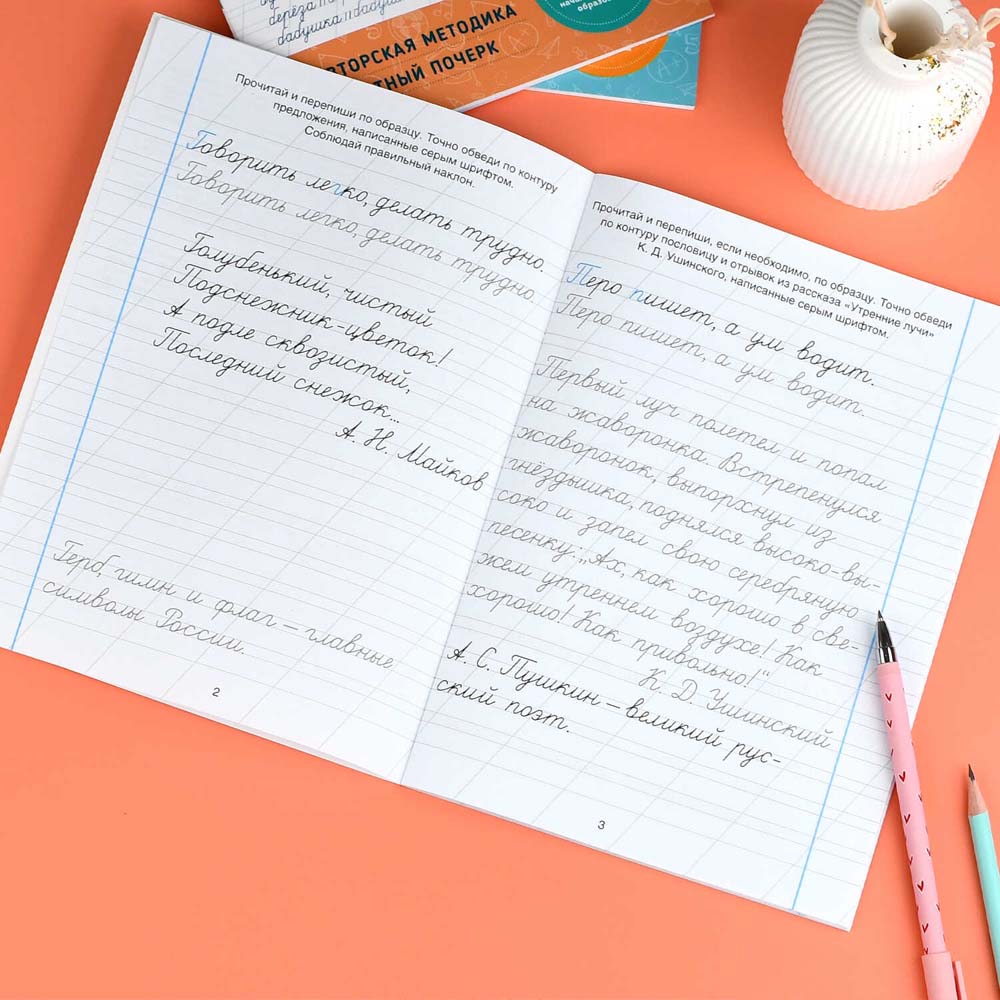 берёза
бабушка и бабушка
ТОРСКАЯ МЕТОДИКА
ТНЫЙ ПОЧЕРК
Прочитай и перепиши по образцу. Точно обведи по контуру
предложения, написанные серым шрифтом.
Соблюдай правильный наклон.
Говорить легко, делать трудно.
Говорить легко, делать трудно.
Голубенький, чистый
Подснежник-цветок!
А подле сквозистый,
Последний снежок...
А. Н. Майков
Герб, гимн и флаг – главные
символы России.
2
Прочитай и перепиши, если необходимо, по образцу. Точно обведи
по контуру пословицу и отрывок из рассказа «Утренние лучи»
К. Д. Ушинского, написанные серым шрифтом.
Перо пишет, а ум водит.
Перо пишет, а ум водит.
Первый луч полетел и попал
на жаворонка. Встрепенулся
жаворонок, выпорхнул из
гнёздышка, поднялся высоко-вы-
соко и запел свою серебряную
песенку: „Ах, как хорошо в све-
жем утреннем воздухе! Как
хорошо! Как привольно!“
К. Д. Ушинский
А. С. Пушкин – великий рус-
ский поэт.
3